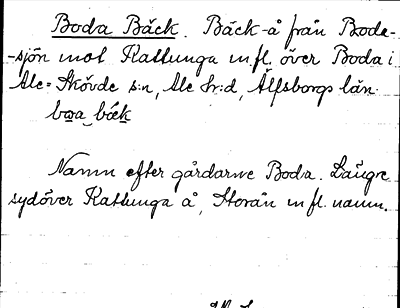 Boda Bäck. Bäck-å från Boda-
-sjön mot Kattunga m.fl. över Boda i
Ale-Skövde s:n, Ale h:d, Älfsborgs län.
boa bäck
Namn efter gårdarne Boda. Längre
sydöver Kattunga å, Storån m.fl. namn.